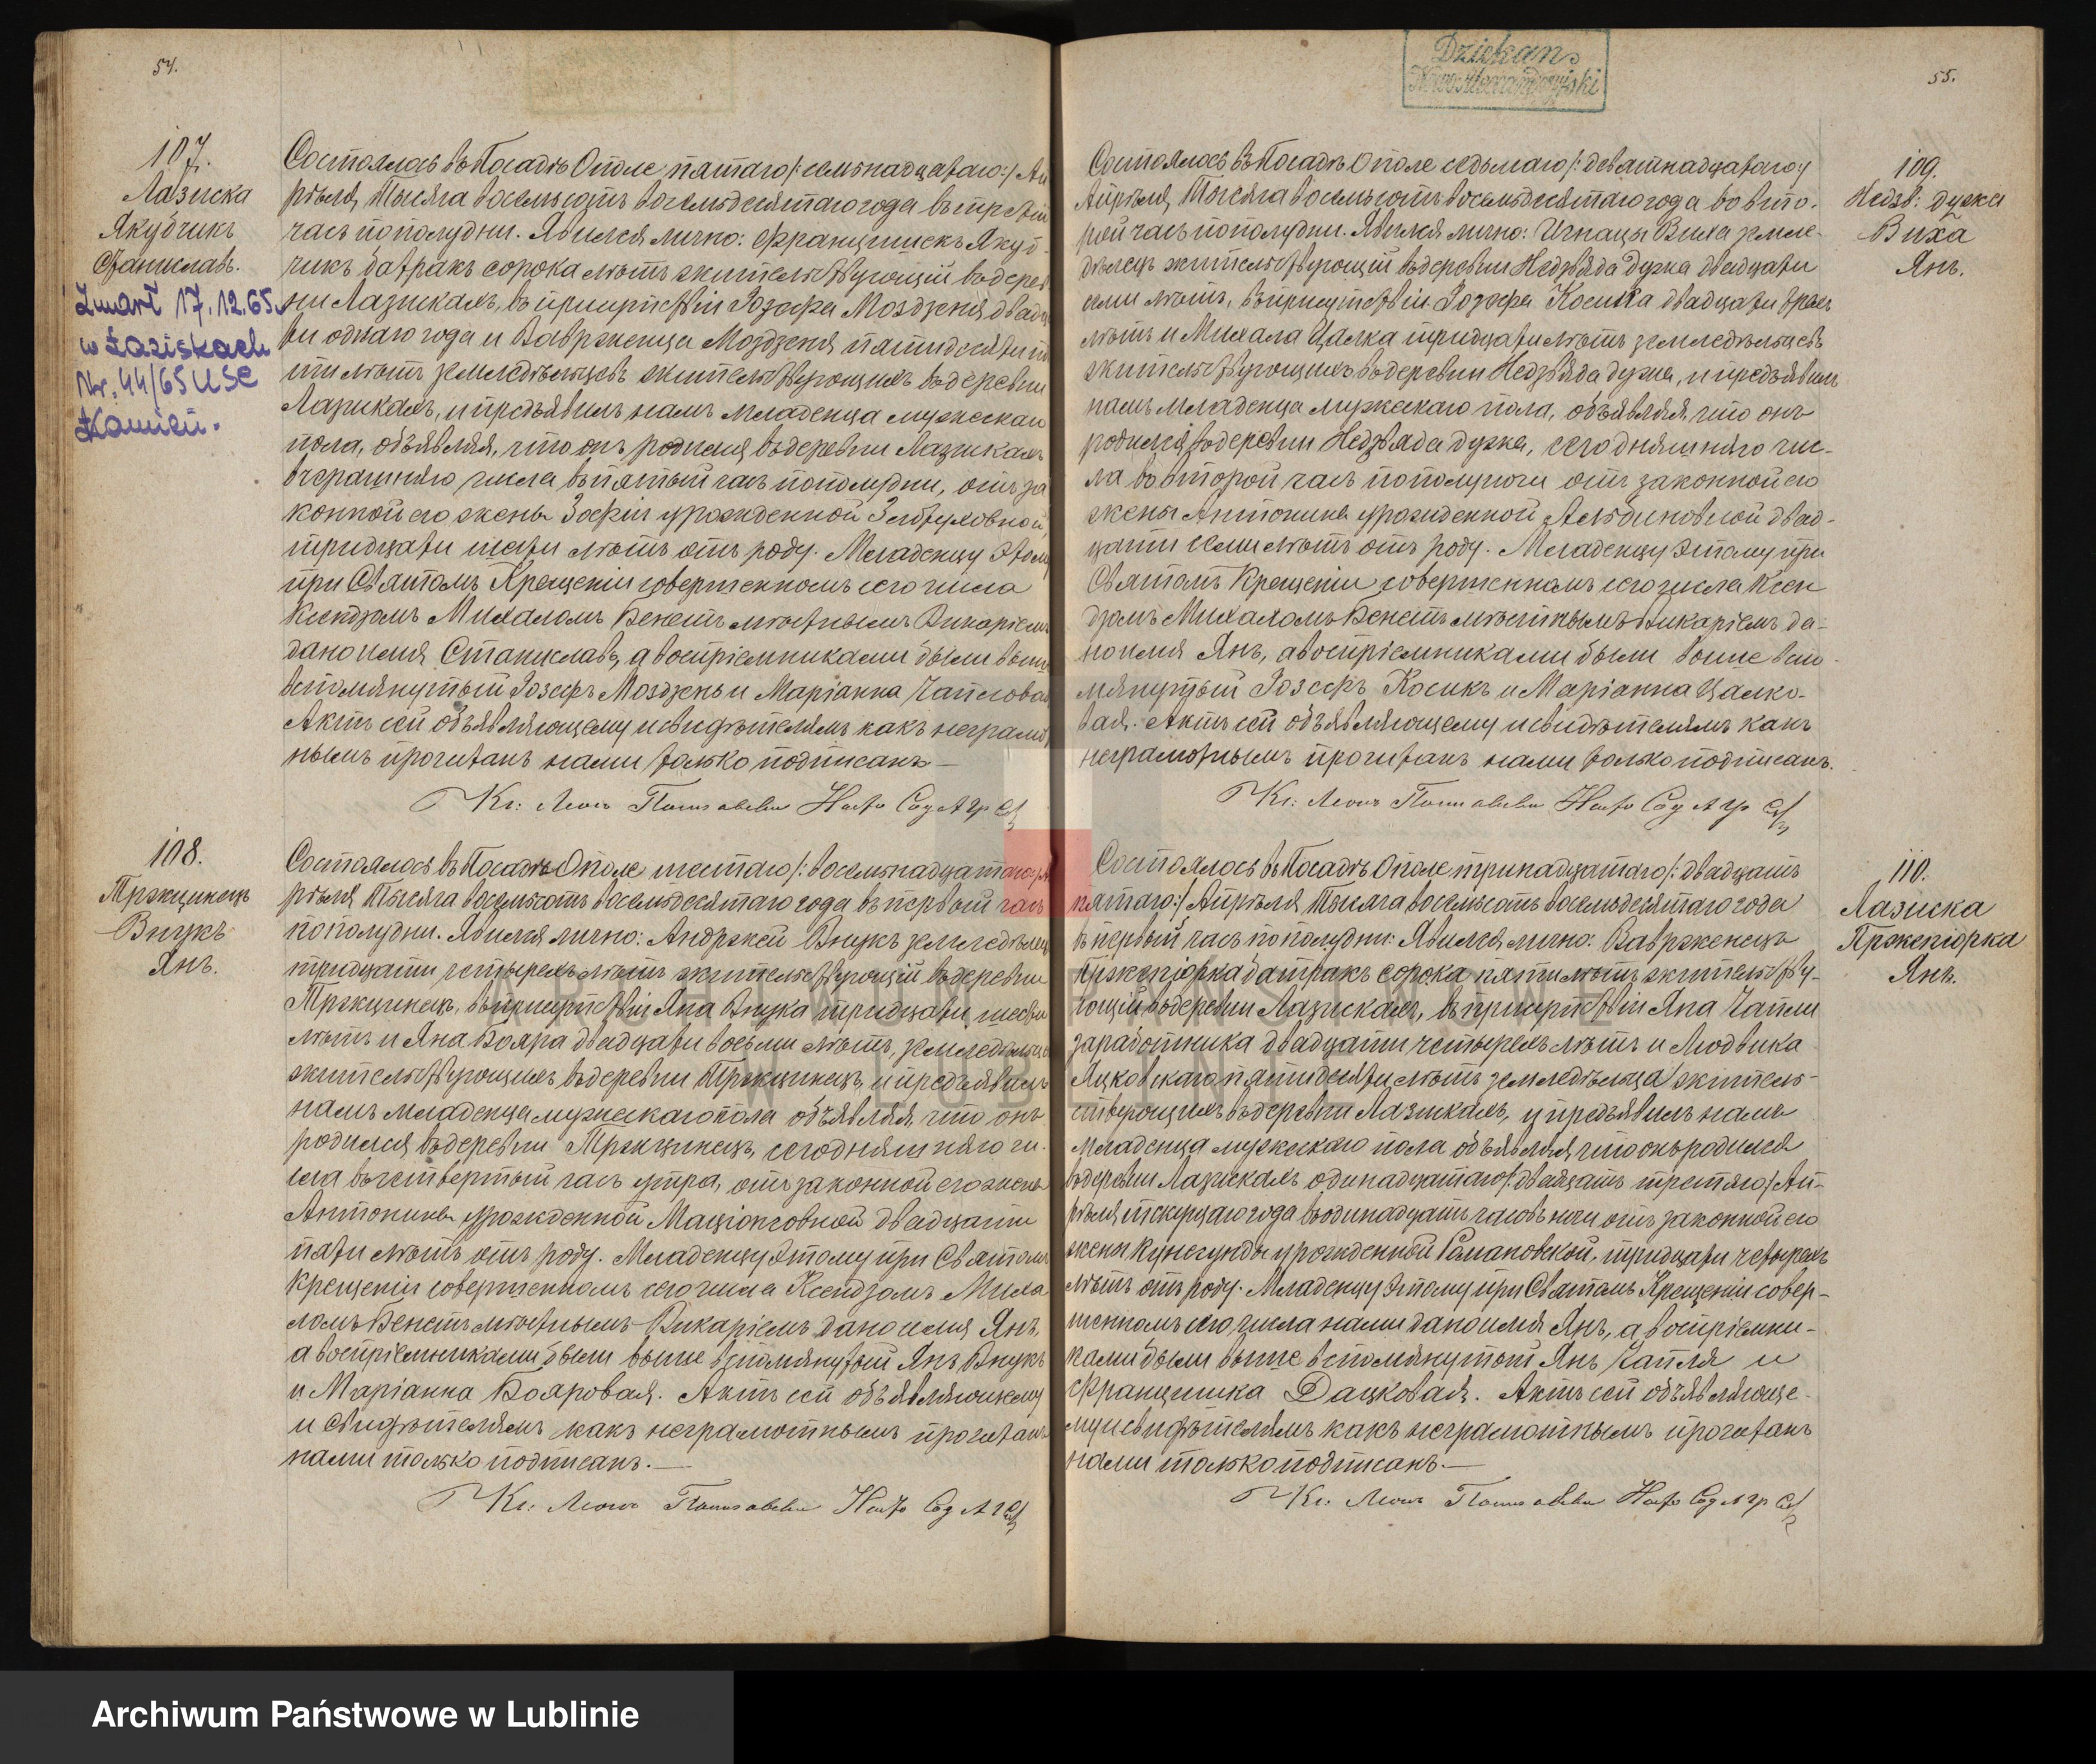 54.
107.
Лазиска
Якубчикъ
Станиславъ.
Zmarł 17.12.65.
w Łaziskach
Nr. 44/65 USC
Kamień.
Состоялось въ Посадѣ Ополе пятаго /: семьнадцатаго :/ Ап
рѣля, тысяча восемьсотъ восемьдесятаго года въ трет
часъ пополудни. Явился лично: Францишекъ Якуб-
чикъ батракъ сорока лѣтъ жительствующій въ дерев
ни Лазискахъ, въ присутствіи Іозефа Моздженя двадц
ти одного года и Вавржеица Моздженя пятидесяти п
ти лѣтъ земледѣльцевъ жительствующихъ въ деревни
Лазискахъ, и предъявилъ намъ младенца мужескаго
пола, объявляя, что онъ родился въ деревни Лазискахъ
вчерашняго числа въ пятый часъ пополудни, отъ за
конной его жены Зофіи урожденной
тридцати шести лѣтъ отъ роду. Младенцу этому
при Святомъ Крещеніи совершенномъ сего числа
Ксендзомъ Михаломъ Бенетъ мѣстнымъ Викаріемъ
дано имя Станиславъ, а воспріемниками были выше
вспомянутый Іозефъ Мозджень и Маріанна Чаплова
Актъ сей объявляющему и свидѣтелямъ какъ неграмот
нымъ прочитанъ нами только подписанъ —
Кс: Леонъ
108.
Тржцинецъ
Внукъ
Янъ.
Состоялось въ Посадѣ Ополе шестаго /: восемьнадцатаго :/ А
рѣля тысяча восемьсотъ восемьдесятаго года въ первый часъ
пополудни. Явился лично: Андржей Внукъ земледѣлец
тридцати четырехъ лѣтъ жительствующій въ деревни
Тржцинецъ, въ присутствіи Яна Внука тридцати шести
лѣтъ и Яна Бояра двадцати восьми лѣтъ, земледѣльце
жительствующихъ въ деревни Тржцинецъ, и предъявилъ
намъ младенца мужескаго пола объявляя, что онъ
родился въ деревни Тржцинецъ, сегодняшняго чи-
сла въ четвертый часъ утра, отъ законной его жены
Антонины урожденной двадцати
пяти лѣтъ отъ роду. Младенцу этому при Святомъ
Крещеніи совершенномъ сего числа Ксендзомъ Миха
ломъ Бенетъ мѣстнымъ Викаріемъ дано имя Янъ,
а воспріемниками были выше вспомянутый Янъ Внукъ
и Маріанна Бояровая. Актъ сей объявляющему
и свидѣтелямъ какъ неграмотнымъ прочитанъ
нами только подписанъ. —
Кс: Леонъ
Dziekan
Nowoaleksandryjski
55.
109.
Недзв: дужа
Виха
Янъ.
Состоялось въ Посадѣ Ополе седьмаго /: девятнадцатаго :/
Апрѣля, тысяча восемьсотъ восемьдесятаго года во вто-
рой часъ пополудни. Явился лично: Игнацы Виха земле-
дѣлецъ жительствующій въ деревни Недзвяда дужа двадцати
семи лѣтъ, въ присутствіи Іозефа Косика двадцати трехъ
лѣтъ и Михала Цалка тридцати лѣтъ земледѣльцевъ
жительствующихъ въ деревни Недзвяда дужа, и предъявилъ
намъ младенца мужескаго пола, объявляя, что онъ
родился въ деревни Недзвяда дужа, сегодняшняго чис-
ла во второй часъ пополуночи отъ законной его
жены Антонины урожденной двад-
цати семи лѣтъ отъ роду. Младенцу этому при
Святомъ Крещеніи совершенномъ сего числа Ксен
дзомъ Михаломъ Бенетъ мѣстнымъ Викаріемъ да-
но имя Янъ, а воспріемниками были выше вспо-
мянутый Іозефъ Косикъ и Маріанна Цалко-
вая. Актъ сей объявляющему и свидѣтелямъ какъ
неграмотнымъ прочитанъ нами только подписанъ.
Кс: Леонъ
110.
Лазиска
Пржепіорка
Янъ.
Состоялось въ Посадѣ Ополе тринадцатаго /: двадцать
пятаго :/ Апрѣля тысяча восемьсотъ восемьдесятаго года
въ первый часъ пополудни: Явился лично: Вавржeнецъ
Пржепіорка батракъ сорока пяти лѣтъ жительству-
ющій въ деревни Лазискахъ, въ присутствіи Яна Чапли
заработника двадцати четырехъ лѣтъ и Людвика
Яцковскаго пятидесяти лѣтъ земледѣльца житель-
ствующихъ въ деревни Лазискахъ, и предъявилъ намъ
младенца мужескаго пола объявляя что онъ родился
въ деревни Лазискахъ одинадцатаго /: двадцать третяго :/ Ап-
рѣля текущаго года въ одинадцать часовъ ночи отъ законной его
жены Кунегунды урожденной Романовской, тридцати четырехъ
лѣтъ отъ роду. Младенцу этому при Святомъ Крещеніи совер-
шенномъ сего числа нами дано имя Янъ, а воспріемни-
ками были выше вспомянутый Янъ Чапля и
Францишка Дацковая. Актъ сей объявляюще-
му и свидѣтелямъ какъ неграмотнымъ прочитанъ
нами только подписанъ. —
Кс: Леонъ
ARCHIWUM PAŃSTWOWE
W LUBLINIE
Archiwum Państwowe w Lublinie